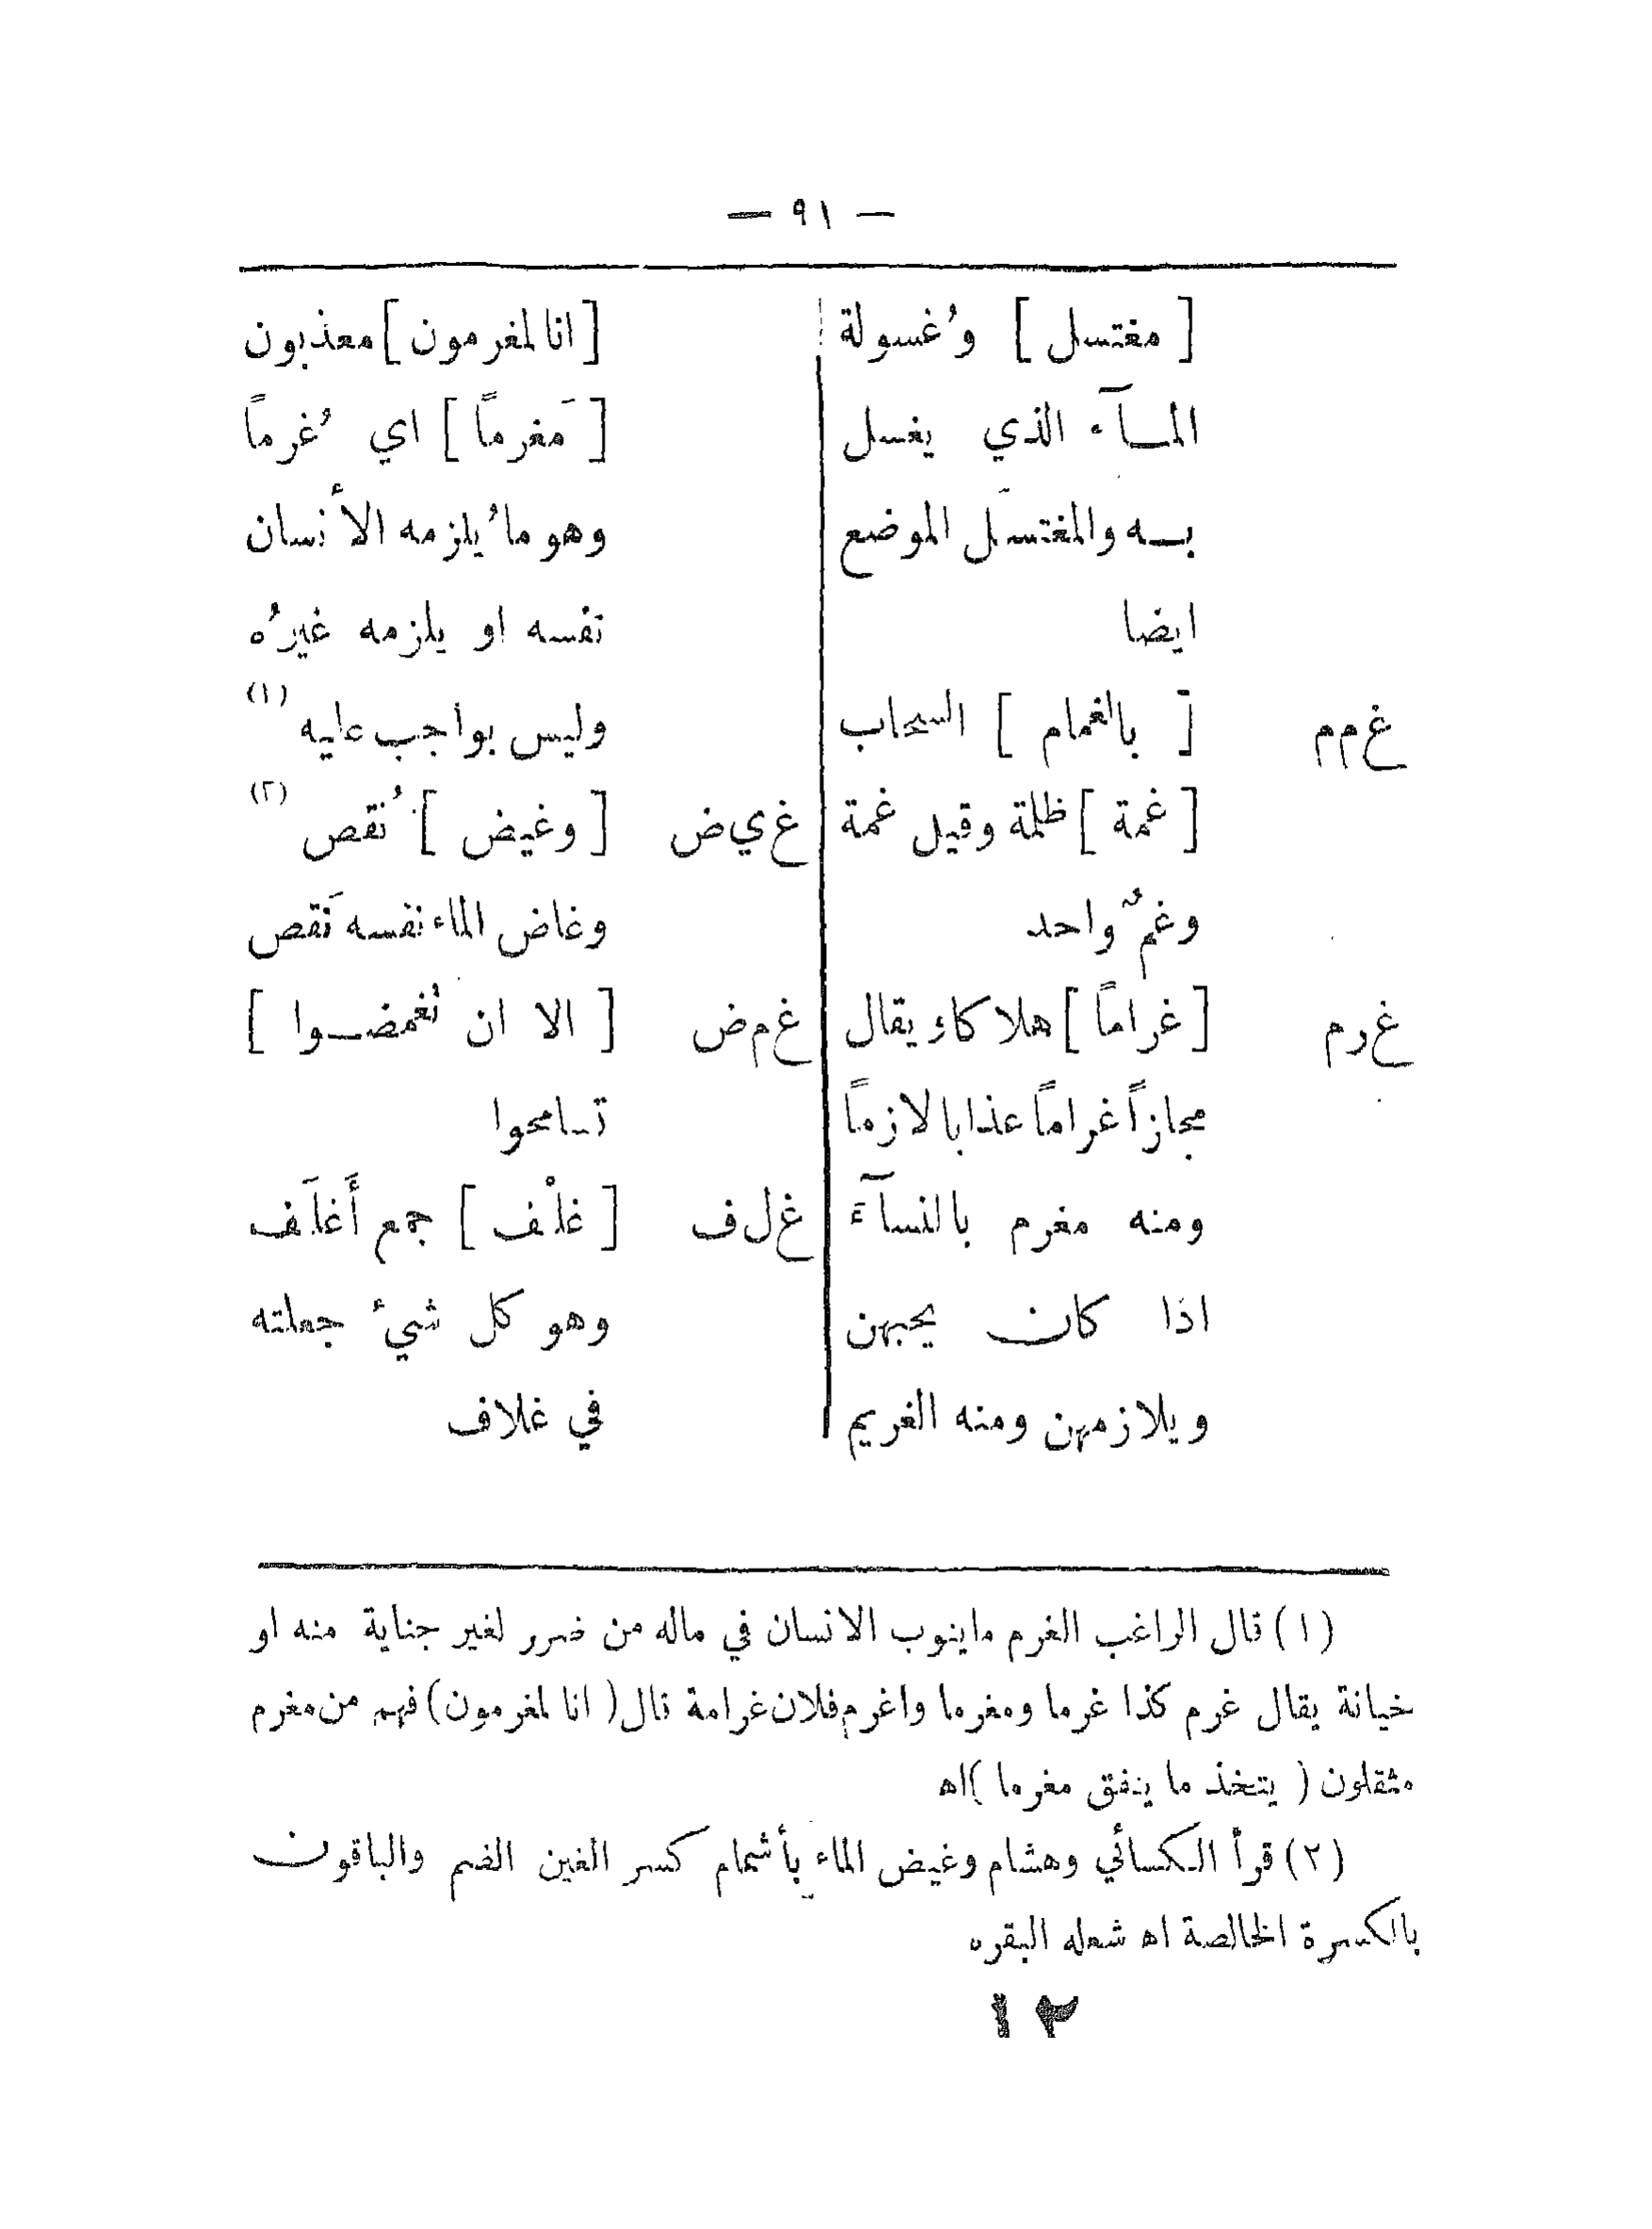 — ٩١ —
[ مغتسل ] وُغسولة
المـــآء الذي يغسل
بـــه والمغتسَل الموضع
ايضا
غ م م [ بالغمام ] السحاب
[ غمة ] ظلمة وقيل غمة
وغمٌ واحد
غ ر م [ غراماً ] هلاكاء يقال
مجازاً غراماً عذابا لازماً
ومنه مغرم بالنسآء
اذا كان يحبهن
ويلازمهن ومنه الغريم
[ انا لمغرمون ] معذبون
[ مَغرماً ] اي ُغرماً
وهو ما ُيلزمه الأنسان
نفسه او يلزمه غيرُه
وليس بواجب عليه (١)
غ ي ض [ وغيض ] ُنقص (٢)
وغاض الماء نفسه نَقص
غ م ض [ الا ان تُغمضــوا ]
تسامحوا
غ ل ف [ غلْف ] جمع أَغلَف
وهو كل شيء جعلته
في غلاف
(١) قال الراغب الغرم ماينوب الانسان في ماله من ضرر لغير جناية منه او
خيانة يقال غرم كذا غرما ومغرما واغرم فلان غرامة قال ( انا لمغرمون ) فهم من مغرم
مثقلون ( يتخذ ما ينفق مغرما ) اه
(٢) قرأ الكسائي وهشام وغيض الماء بأشمام كسر الغين الضم والباقون
بالكسرة الخالصة اه شعله البقره
١٢